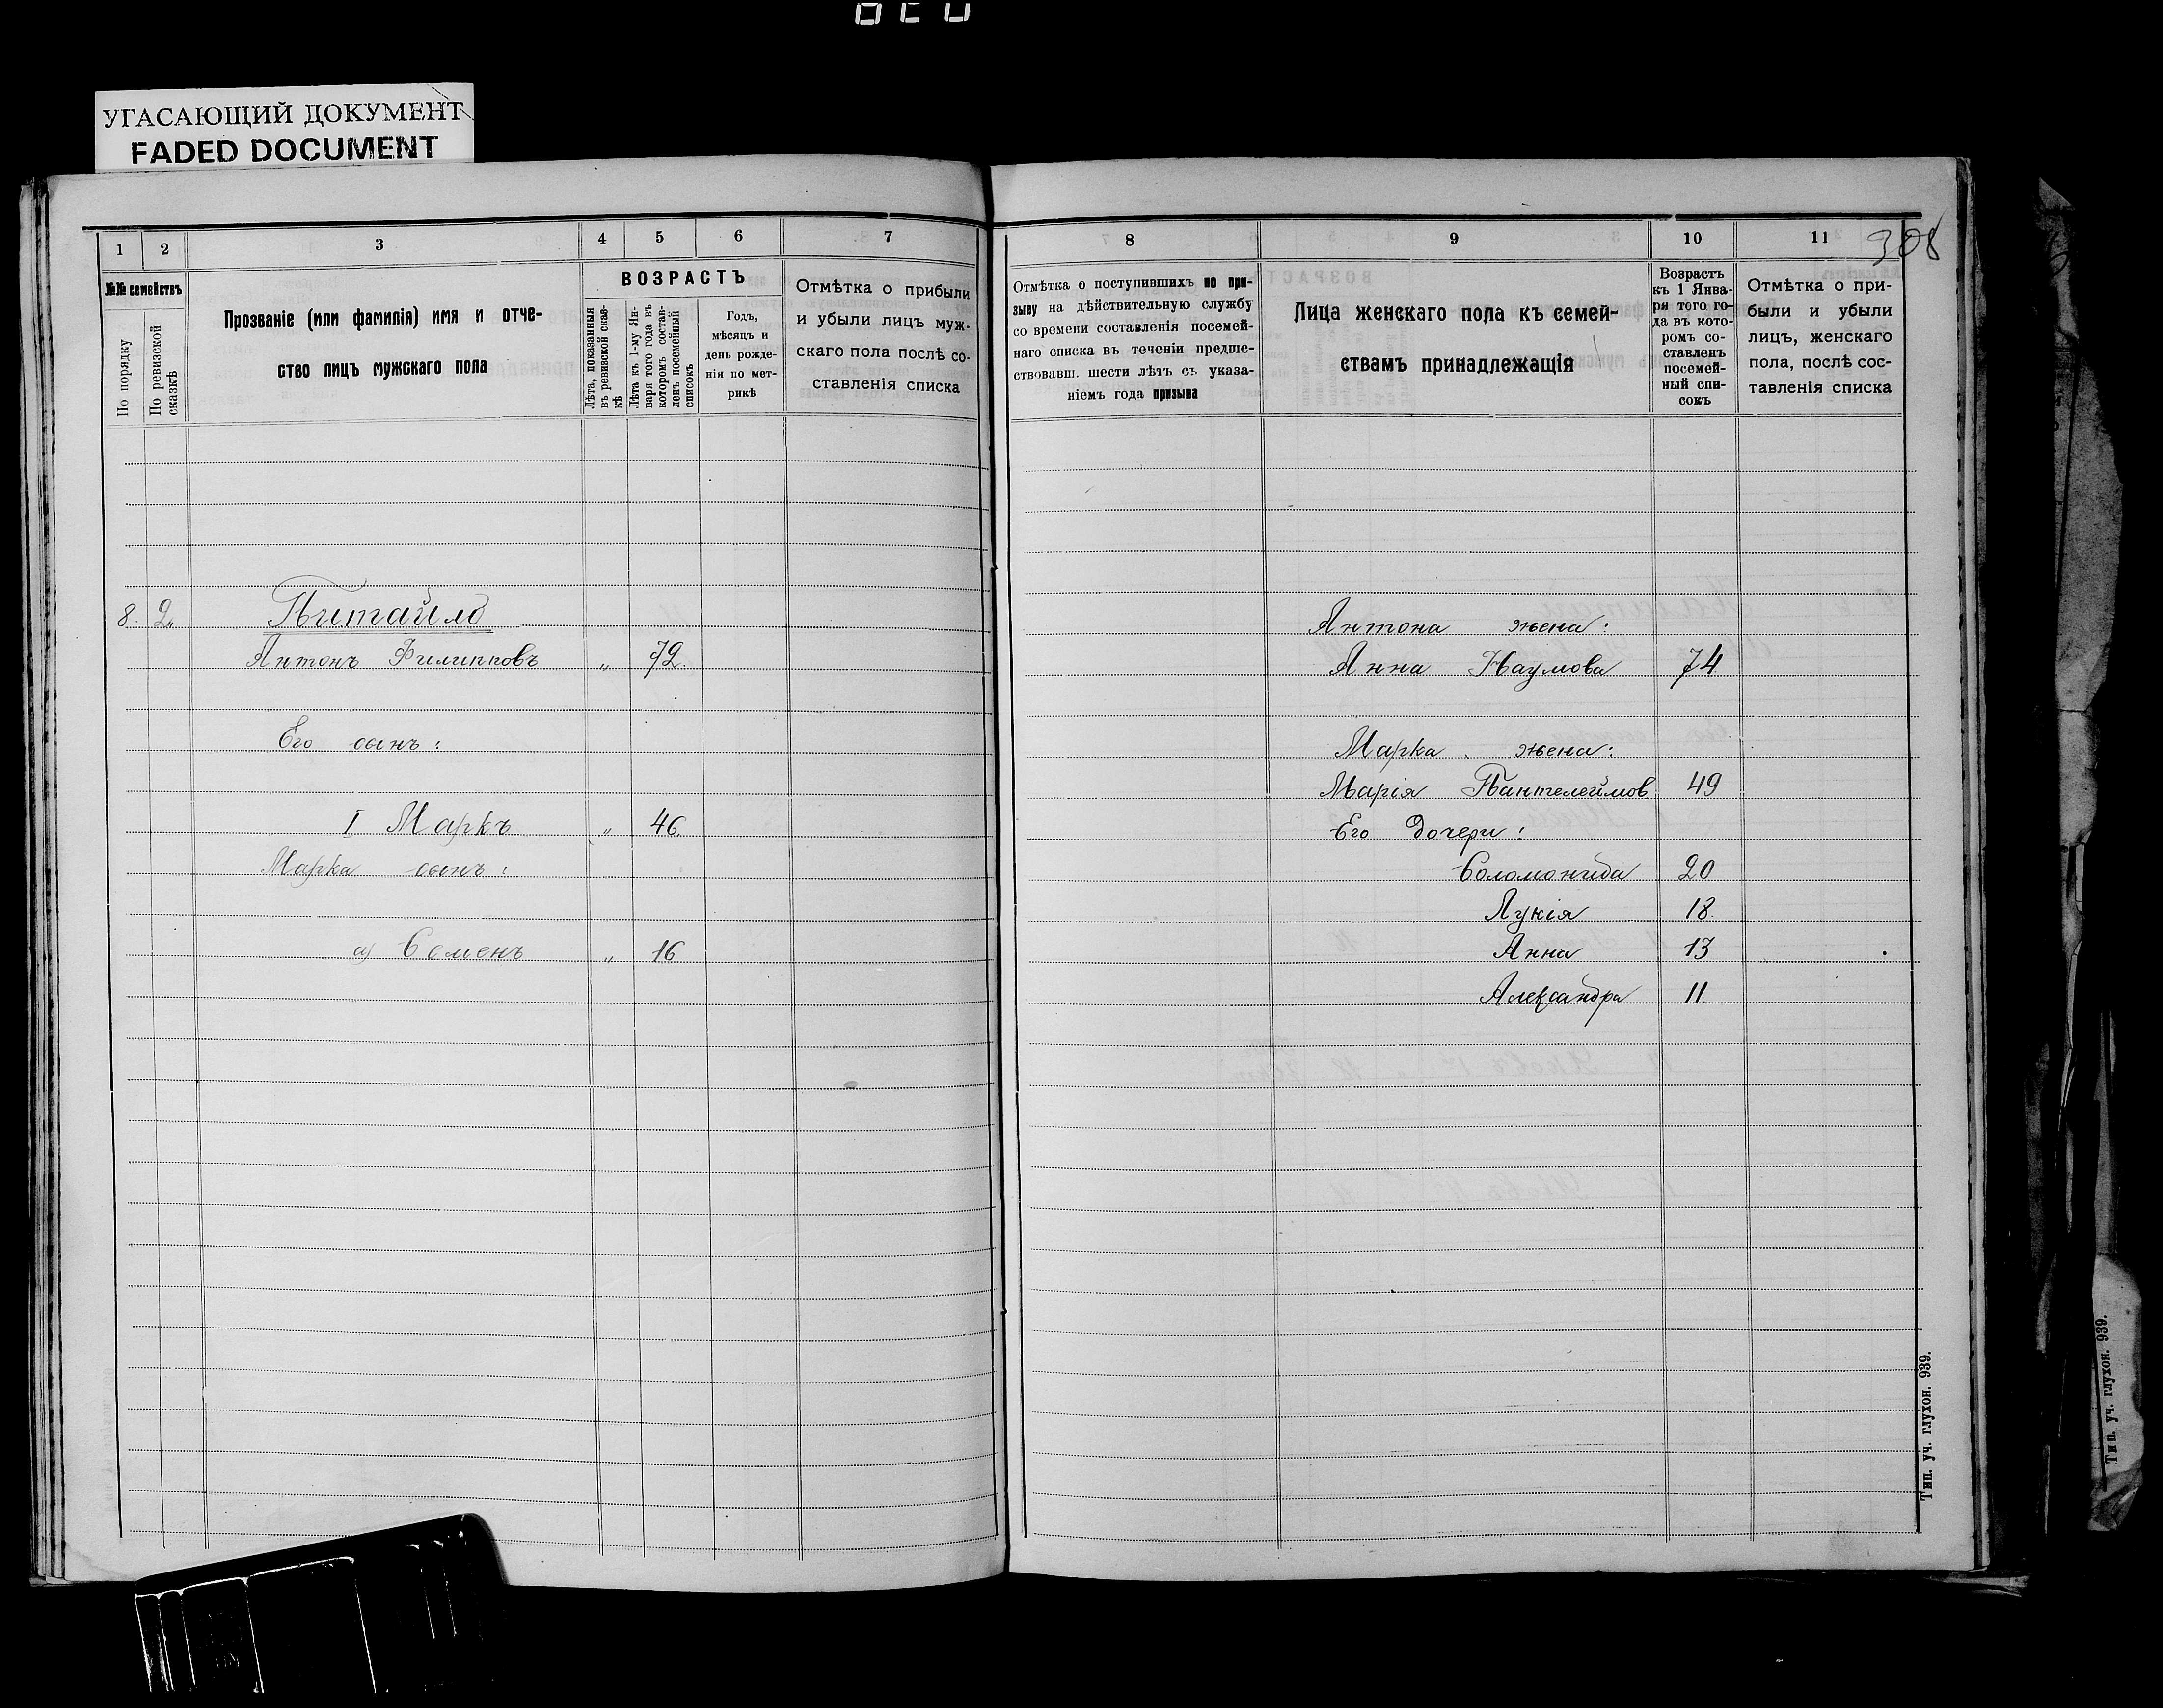 УГАСАЮЩИЙ ДОКУМЕНТ
FADED DOCUMENT
1 2 3 4 5 6 7
№№ семействъ
По порядку
По ревизской сказкѣ
Прозваніе (или фамилія) имя и отче-
ство лицъ мужскаго пола
ВОЗРАСТЪ
Лѣта, показанныя
въ ревизской сказ-
кѣ
Лѣта къ 1-му Ян-
варя того года въ
которомъ состав-
ленъ посемейный
списокъ
Годъ,
мѣсяцъ и
день рожде-
нія по мет-
рикѣ
Отмѣтка о прибыли
и убыли лицъ муж-
скаго пола послѣ со-
ставленія списка
8. 2„ Питайло
Антонъ Филипповъ „ 72.
Его сынъ:
I Маркъ „ 46.
Марка сынъ:
а) Семенъ „ 16
8 9 10 11
308
Отмѣтка о поступившихъ по при-
зыву на дѣйствительную службу
со времени составленія посемей-
наго списка въ теченіи предше-
ствовавш. шести лѣтъ съ указа-
ніемъ года призыва
Лица женскаго пола къ семей-
ствамъ принадлежащія
Возрастъ
къ 1 Янва-
ря того го-
да въ кото-
ромъ со-
ставленъ
посемей-
ный спи-
сокъ
Отмѣтка о при-
были и убыли
лицъ, женскаго
пола, послѣ сос-
тавленія списка
Антона жена:
Анна Наумова 74
Марка жена:
Марія Пантелеймов. 49
Его дочери:
Соломонида 20
Лукія 18.
Анна 13
Александра 11
Тип. уч. глухон. 939.
Тип. уч. глухон. 939.